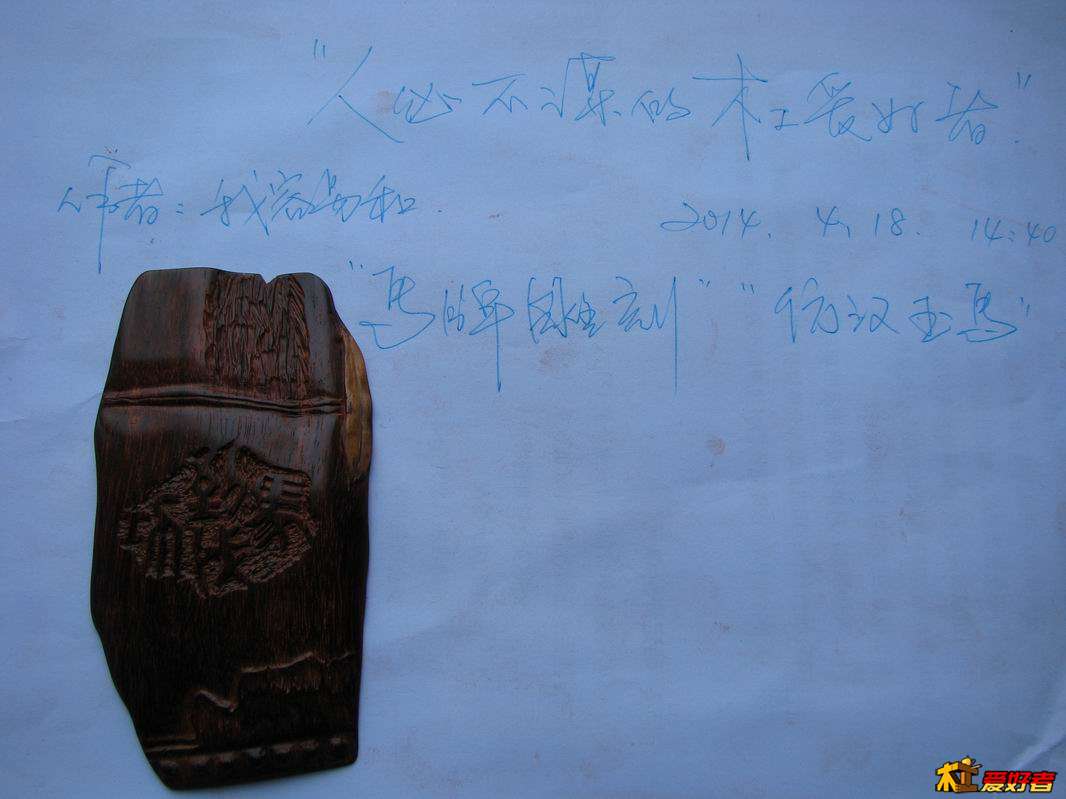 "人必不谋的木工爱好者"
作者：我容易和.
2014. 4. 18. 14:40
"马牌雕刻" "仿汉玉马"
木工爱好者